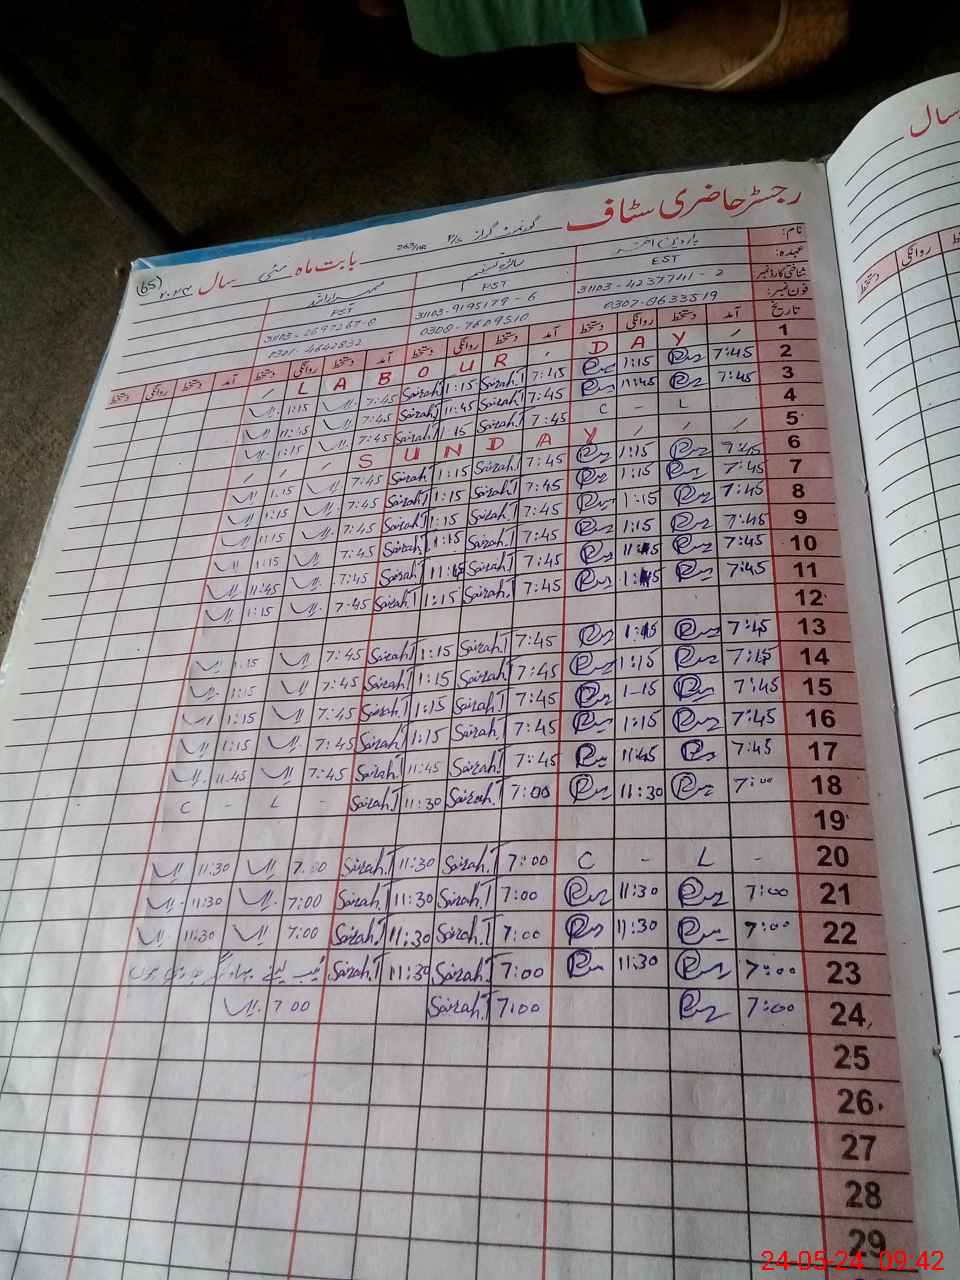 سال
رجسٹر حاضری سٹاف
بابت ماہ مئی سال ۲۰۲۴
(65)
نام:
عہدہ: EST EST EST
شناختی کارڈ نمبر:
31103-4237741-2
31103-9195179-6
فون نمبر:
0307-8633519
0300-7609510
0301-4642832
تاریخ آمد دستخط روانگی دستخط آمد دستخط روانگی دستخط آمد دستخط روانگی دستخط آمد دستخط روانگی دستخط
1 LABOUR DAY
2 7:45 1:15 7:45 Sairah.T 1:15 Sairah.T 7:45 1:15
3 7:45 11:45 7:45 Sairah.T 11:45 Sairah.T 7:45 11:45
4 L - C 7:45 Sairah.T 1:15 Sairah.T 7:45 1:15
5 SUNDAY
6 7:45 1:15 7:45 Sairah.T 1:15 Sairah.T 7:45 1:15
7 7:45 1:15 7:45 Sairah.T 1:15 Sairah.T 7:45 1:15
8 7:45 1:15 7:45 Sairah.T 1:15 Sairah.T 7:45 1:15
9 7:45 1:15 7:45 Sairah.T 1:15 Sairah.T 7:45 1:15
10 7:45 11:45 7:45 Sairah.T 11:45 Sairah.T 7:45 11:45
11 7:45 7:45 Sairah.T 1:15 Sairah.T 7:45 1:15
12
13 7:45 7:45 Sairah.T 1:15 Sairah.T 7:45 1:15
14 7:15 1:15 7:45 Sairah.T 1:15 Sairah.T 7:45 1:15
15 7:45 1-15 7:45 Sairah.T 1:15 Sairah.T 7:45 1:15
16 7:45 1:15 7:45 Sairah.T 1:15 Sairah.T 7:45 1:15
17 7:45 11:45 7:45 Sairah.T 11:45 Sairah.T 7:45 11.45
18 7:00 11:30 7:00 Sairah.T 11:30 Sairah.T - L - C
19
20 - L - C 7:00 Sairah.T 11:30 Sairah.T 7:00 11:30
21 7:00 11:30 7:00 Sairah.T 11:30 Sairah.T 7:00 11:30
22 7:00 11:30 7:00 Sairah.T 11:30 Sairah.T 7:00 11:30
23 7:00 11:30 7:00 Sairah.T 11:30 Sairah.T
24 7:00 7:00 Sairah.T 7 00
25
26
27
28
29
روانگی دستخط
24-05-24 09:42